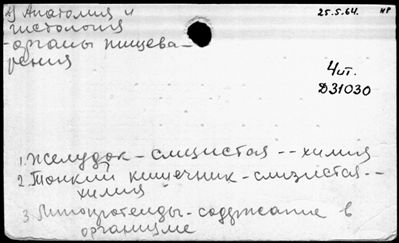 2) Анатомия и
гистология
- органы пищева-
рения
25.5.64. НР
4ит.
Д31030
1. Желудок - слизистая -- химия
2. Тонкий кишечник - слизистая --
химия
3. Липопротеиды - содержание в
организме